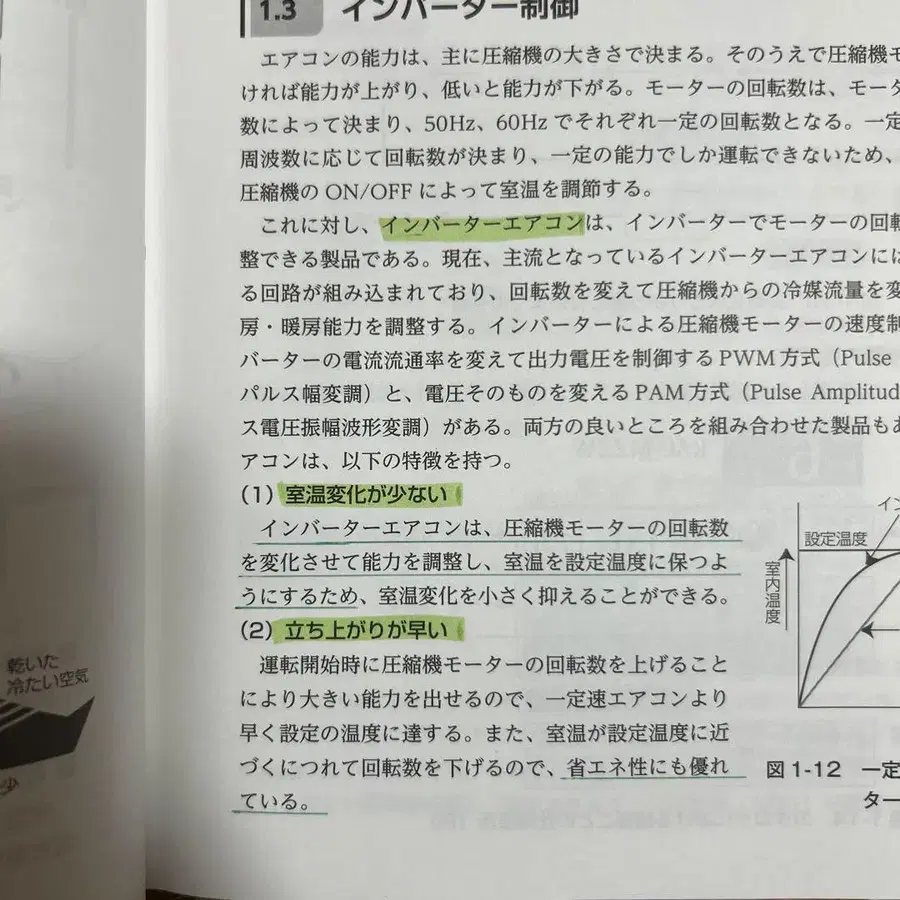 1.3 インバーター制御
エアコンの能力は、主に圧縮機の大きさで決まる。そのうえで圧縮機モ
ければ能力が上がり、低いと能力が下がる。モーターの回転数は、モータ
数によって決まり、50Hz、60Hzでそれぞれ一定の回転数となる。一定
周波数に応じて回転数が決まり、一定の能力でしか運転できないため、
圧縮機のON/OFFによって室温を調節する。
これに対し、インバーターエアコンは、インバーターでモーターの回転
整できる製品である。現在、主流となっているインバーターエアコンには
る回路が組み込まれており、回転数を変えて圧縮機からの冷媒流量を変
房・暖房能力を調整する。インバーターによる圧縮機モーターの速度制
バーターの電流流通率を変えて出力電圧を制御するPWM方式（Pulse
パルス幅変調）と、電圧そのものを変えるPAM方式（Pulse Amplitud
ス電圧振幅波形変調）がある。両方の良いところを組み合わせた製品もあ
アコンは、以下の特徴を持つ。
(1) 室温変化が少ない
インバーターエアコンは、圧縮機モーターの回転数
を変化させて能力を調整し、室温を設定温度に保つよ
うにするため、室温変化を小さく抑えることができる。
(2) 立ち上がりが早い
運転開始時に圧縮機モーターの回転数を上げること
により大きい能力を出せるので、一定速エアコンより
早く設定の温度に達する。また、室温が設定温度に近
づくにつれて回転数を下げるので、省エネ性にも優れ
ている。
イン
設定温度
室内温度
図1-12 一定
ター
乾いた
冷たい空気